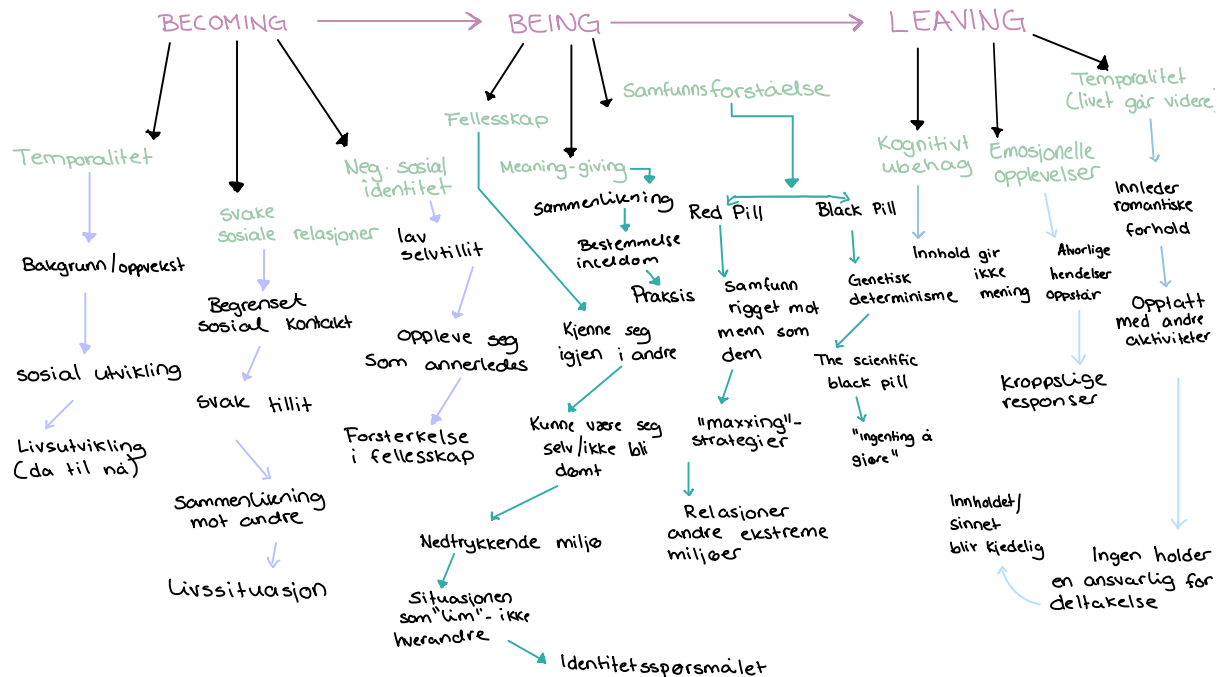 BECOMING
BEING
LEAVING
Temporalitet
Bakgrunn/oppvekst
sosial utvikling
Livsutvikling
(da til nå)
Svake
sosiale relasjoner
Begrenset
sosial kontakt
svak tillit
Sammenlikning
mot andre
Livssituasjon
Neg. sosial
identitet
lav
selvtillit
oppleve seg
som annerledes
Forsterkelse
i fellesskap
Fellesskap
Kjenne seg
igjen i andre
Kunne være seg
selv/ikke bli
dømt
Nedtrykkende miljø
Situasjonen
som "lim" - ikke
hverandre
Identitetsspørsmålet
Meaning-giving
Sammenlikning
Bestemmelse
inceldom
Praksis
Samfunnsforståelse
Red Pill
Samfunn
rigget mot
menn som
dem
"maxxing"-
strategier
Relasjoner
andre ekstreme
miljøer
Black Pill
Genetisk
determinisme
The scientific
black pill
"ingenting å
gjøre"
Kognitivt
ubehag
Innhold gir
ikke
mening
Emosjonelle
opplevelser
Alvorlige
hendelser
oppstår
Kroppslige
responser
Temporalitet
(livet går videre)
Innleder
romantiske
forhold
Opptatt
med andre
aktiviteter
Ingen holder
en ansvarlig for
deltakelse
Innholdet/
sinnet
blir kjedelig